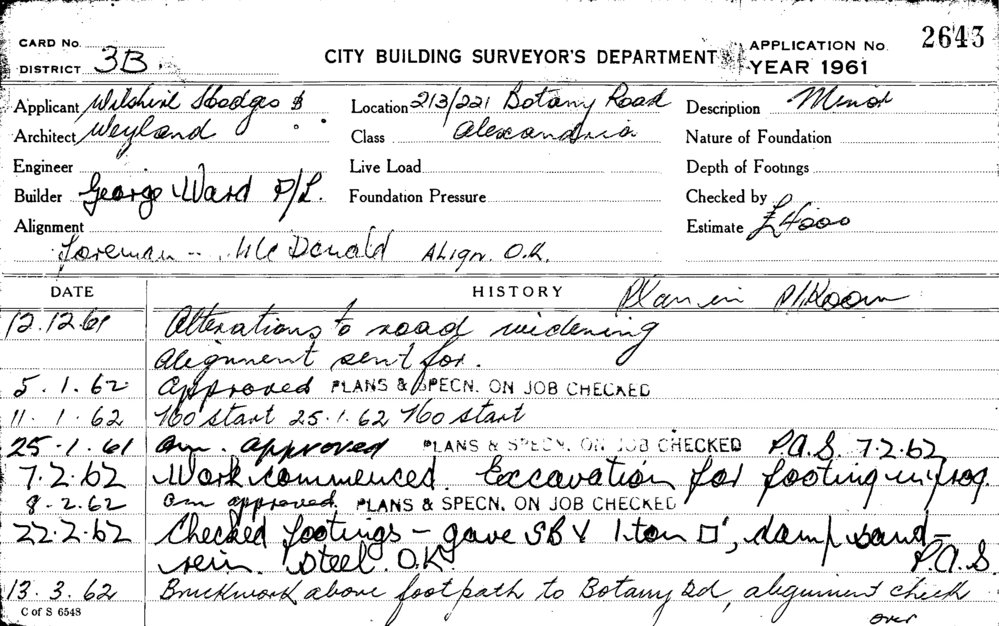 CARD No.
DISTRICT 3B.
CITY BUILDING SURVEYOR'S DEPARTMENT
APPLICATION No. 2643
YEAR 1961
Applicant Wilshire Hodges &
Location 213/221 Botany Road
Description Minor
Architect Weyland
Class Alexandria
Nature of Foundation
Engineer
Live Load
Depth of Footings
Builder George Ward P/L.
Foundation Pressure
Checked by
Alignment
Estimate £4000
Foreman -- McDonald Align. O.K.
DATE HISTORY Plan in P/Room
12.12.61 Alterations to road widening
Alignment sent for.
5.1.62 Approved PLANS & SPECN. ON JOB CHECKED
11.1.62 No start 25.1.62 No start
25.1.61 am. approved PLANS & SPECN. ON JOB CHECKED P.A.S. 7.2.62
7.2.62 Work commenced. Excavation for footing in prog.
8.2.62 am approved. PLANS & SPECN. ON JOB CHECKED
22.2.62 Checked footings – gave SBV 1 ton □', damp sand –
rein. steel O.K. P.A.S.
13.3.62 Brickwork above footpath to Botany Rd, alignment check
C of S 6548
over